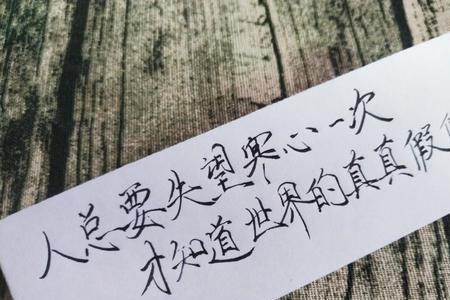 人总要失望寒心一次
才知道世界的真真假假